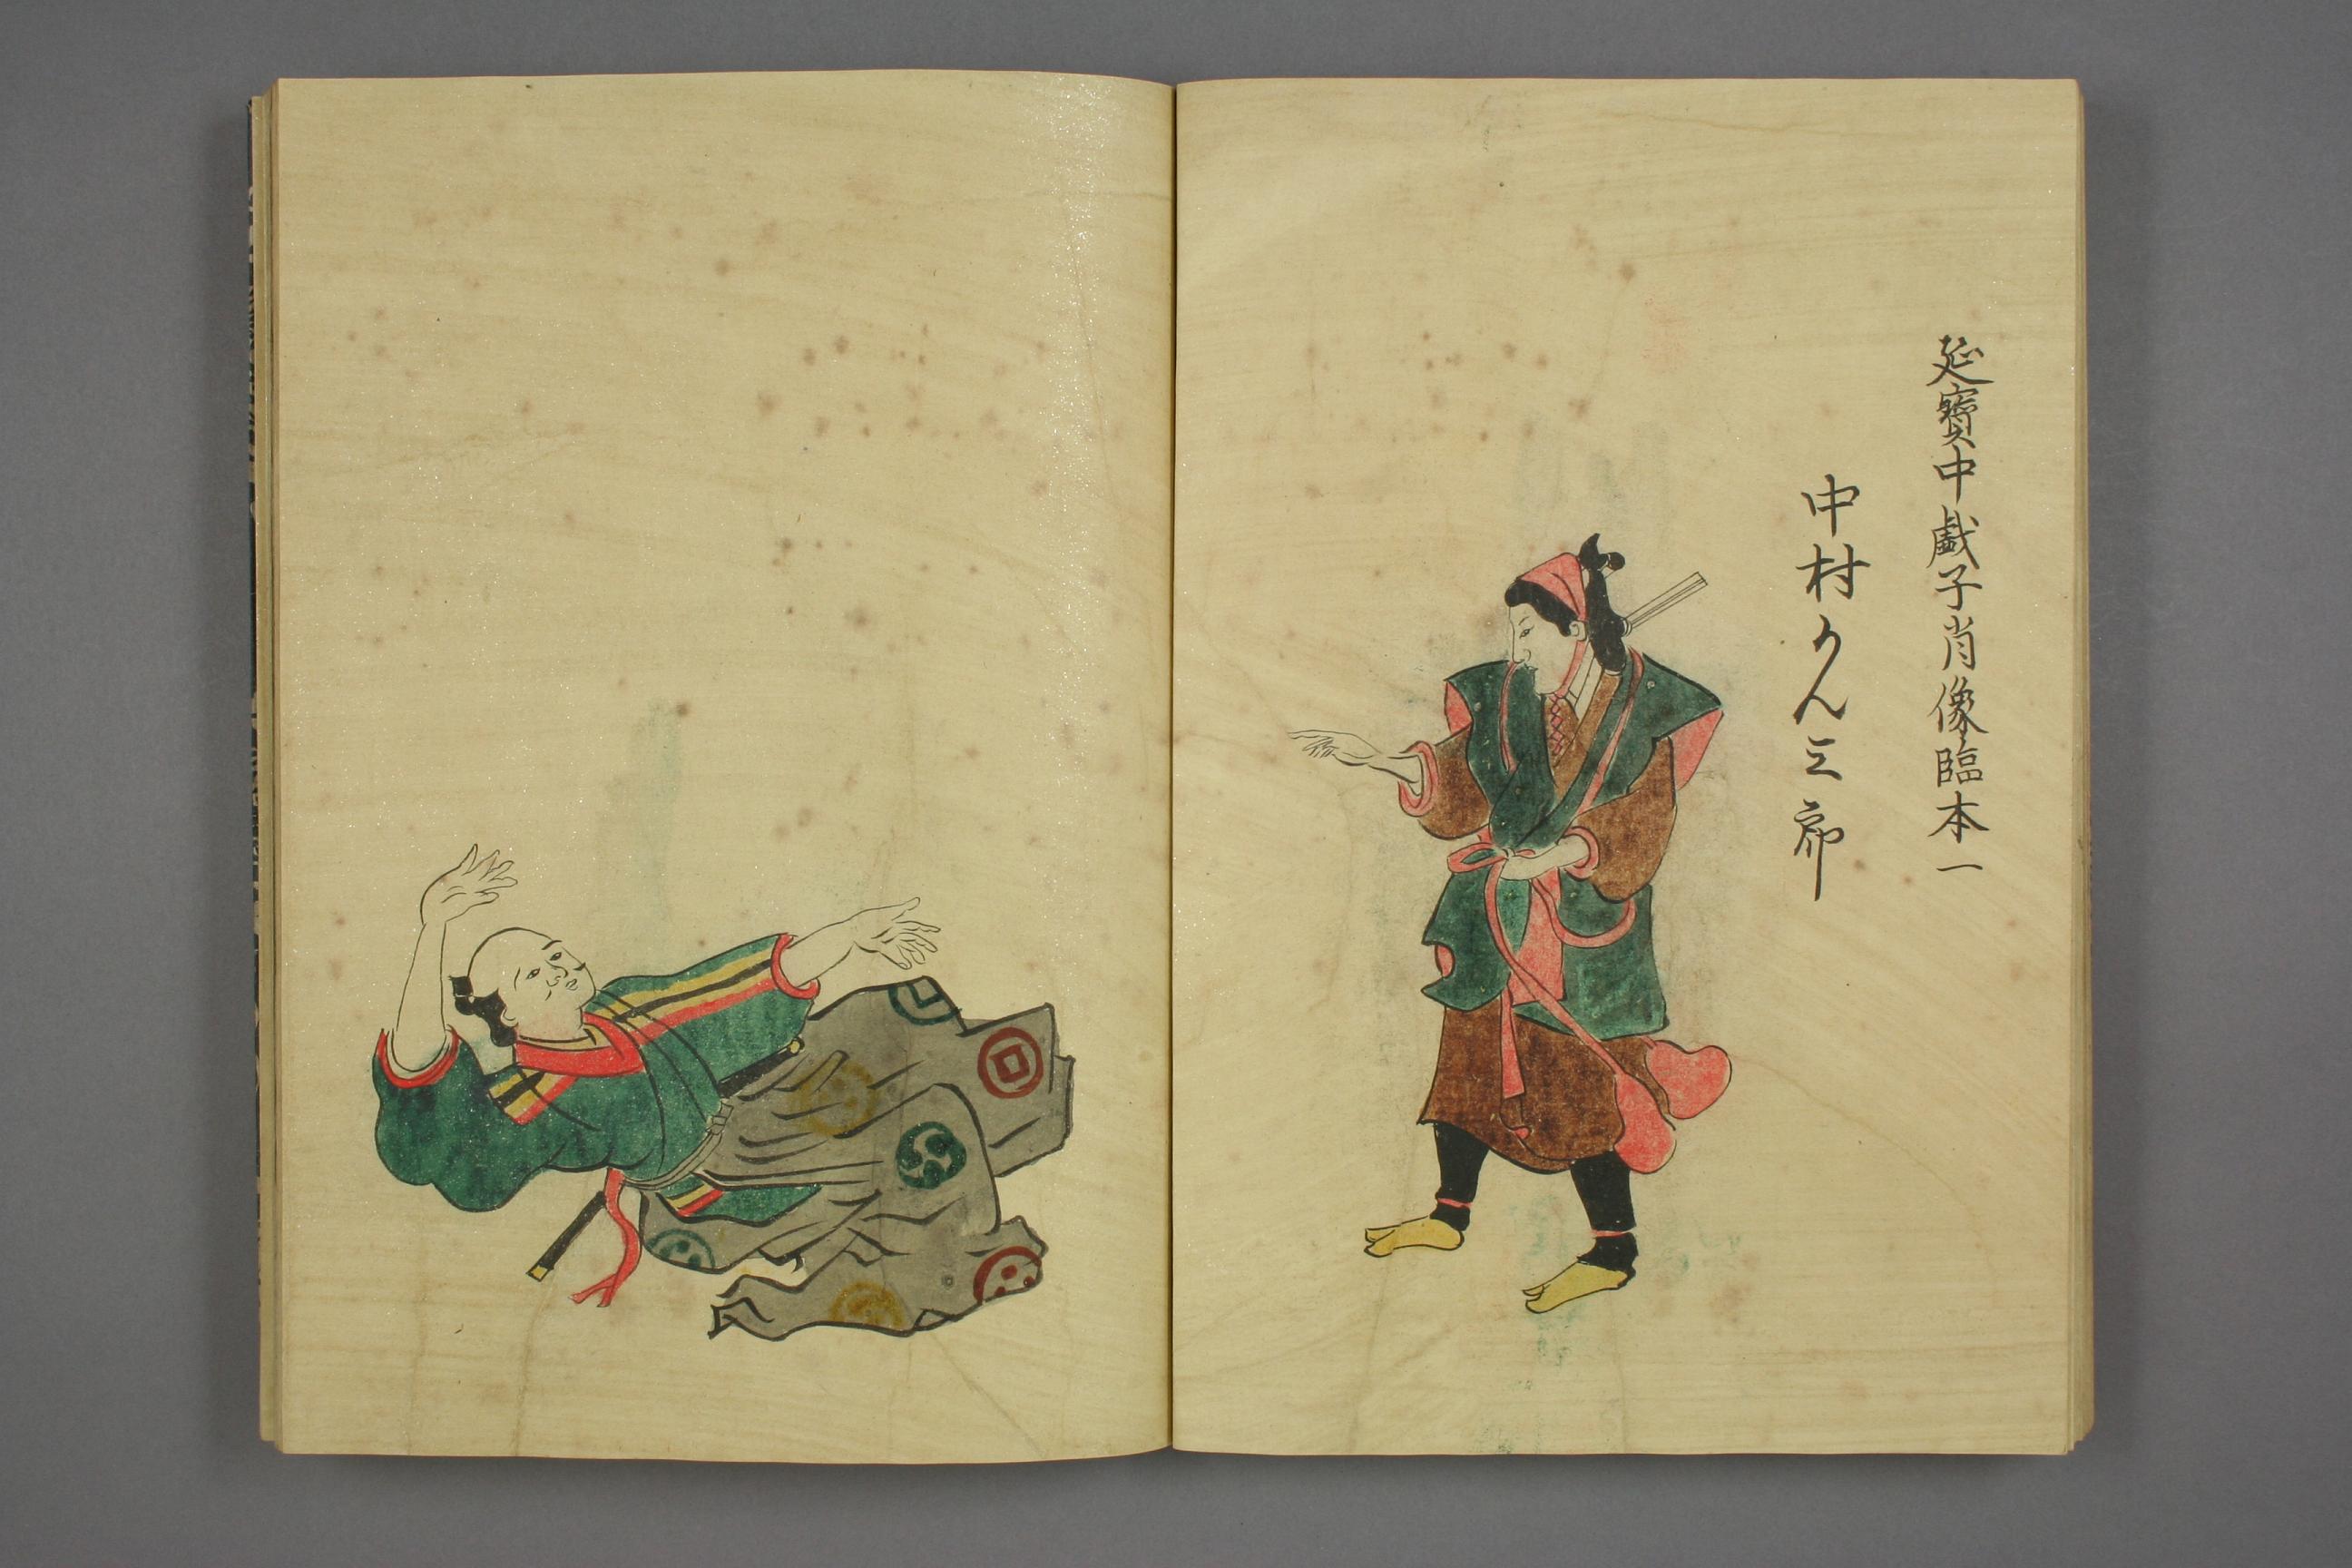 延寶中戯子肖像臨本一
中村かん三郎